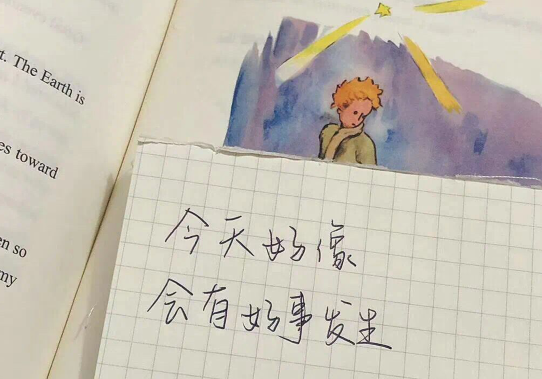 t. The Earth is
es toward
en so
my
今天好像
会有好事发生